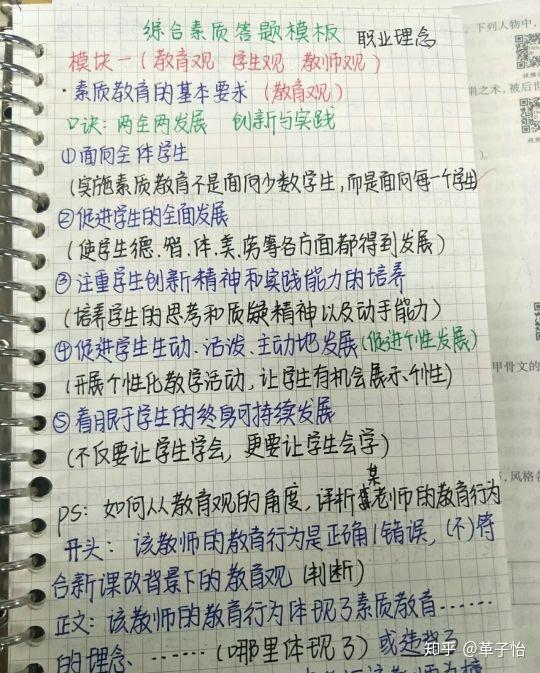 综合素质答题模板 职业理念
模块一（教育观 学生观 教师观）
·素质教育的基本要求（教育观）
口诀：两全两发展 创新与实践
①面向全体学生
（实施素质教育不是面向少数学生，而是面向每一个学生
②促进学生的全面发展
（使学生德、智、体、美、劳等各方面都得到发展）
③注重学生创新精神和实践能力的培养
（培养学生的思考和质疑精神以及动手能力）
④促进学生生动、活泼、主动地发展（促进个性发展）
（开展个性化教学活动，让学生有机会展示个性）
⑤着眼于学生的终身可持续发展
（不仅要让学生学会，更要让学生会学）
某
PS：如何从教育观的角度，评析老师的教育行为
开头：该教师的教育行为是正确/错误，（不）符
合新课改背景下的教育观（判断）
正文：该教师的教育行为体现了素质教育……
的理念……（哪里体现了）或违背了
下列人物中，
之术，被后世
甲骨文的
风格各
知乎 @革子怡